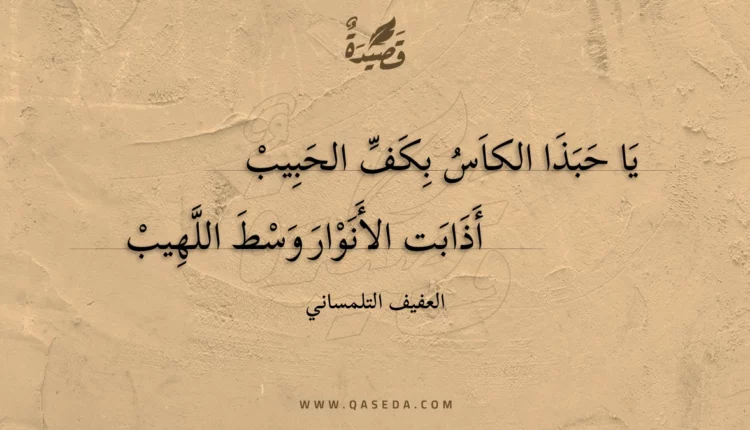 قَصِيدَةٌ
يَا حَبَذَا الكاَسُ بِكَفِّ الحَبِيبْ
أَذَابَت الأَنَوْارَ وَسْطَ اللَّهِيبْ
العفيف التلمساني
WWW.QASEDA.COM